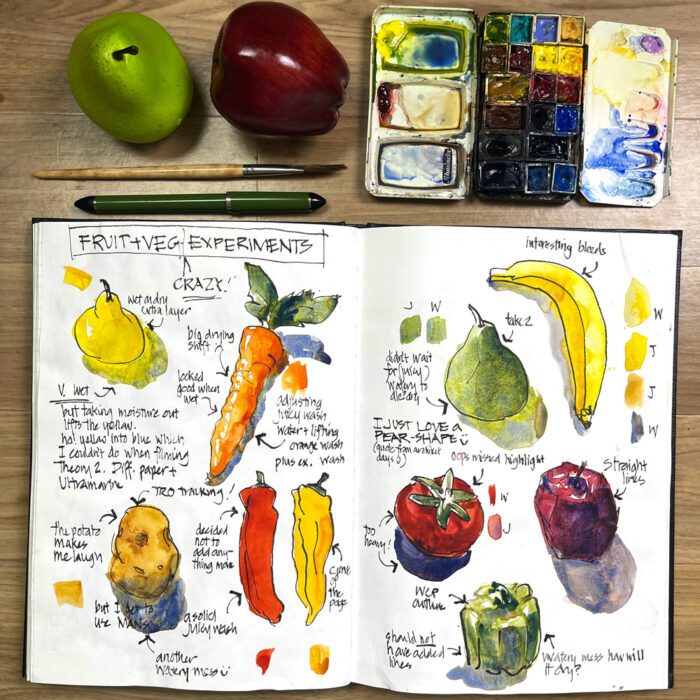 FRUIT+VEG EXPERIMENTS
CRAZY!
wet on dry
extra layer
big drying
shift
looked
good when
wet
V. wet
but taking moisture out
lifts the yellow.
had yellow into blue which
I couldn't do when filming
Theory 2. Diff. paper +
Ultramarine
adjusting
juicy wash
water + lifting
orange wash
plus ex. wash
TRO tracking!
the potato
makes
me laugh
but I
use MANS
another
watery mess
decided
not to
add any-
thing more
a solid
juicy wash
of the
page
interesting bleeds
J W
take 2
didn't wait
for (juicy)
watery to
dry
I JUST LOVE A
PEAR-SHAPE
(quote from architect
days)
W
J
W
oops missed highlight
W
J
too
heavy!
straight
lines
WCP
outline
should not
have added
lines
watery mess how will
it dry?